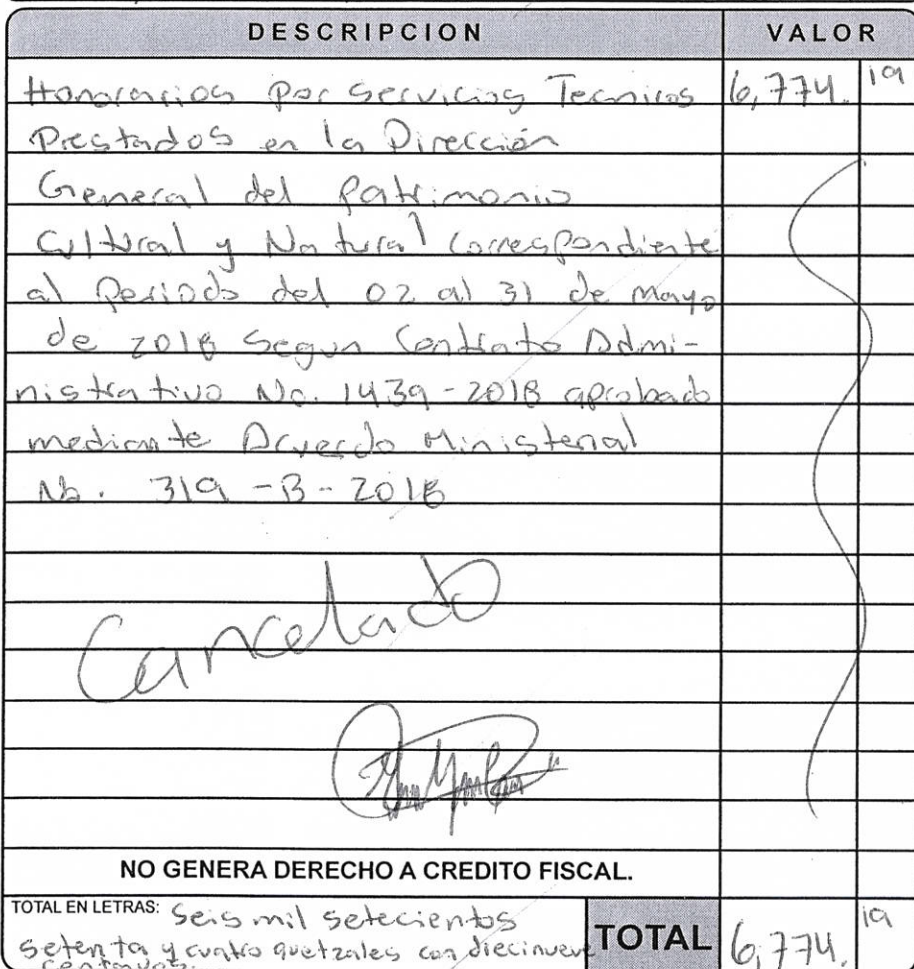 DESCRIPCION VALOR
Honorarios por servicios Tecnicos 6,774. 19
Prestados en la Dirección
General del Patrimonio
Cultural y Natural correspondiente
al Periodo del 02 al 31 de mayo
de 2018 Segun Contrato Admi-
nistrativo No. 1439-2018 aprobado
mediante Acuerdo Ministerial
No. 319-B-2018
Cancelado
NO GENERA DERECHO A CREDITO FISCAL.
TOTAL EN LETRAS: Seis mil setecientos
setenta y cuatro quetzales con diecinueve
centavos.
TOTAL 6,774. 19